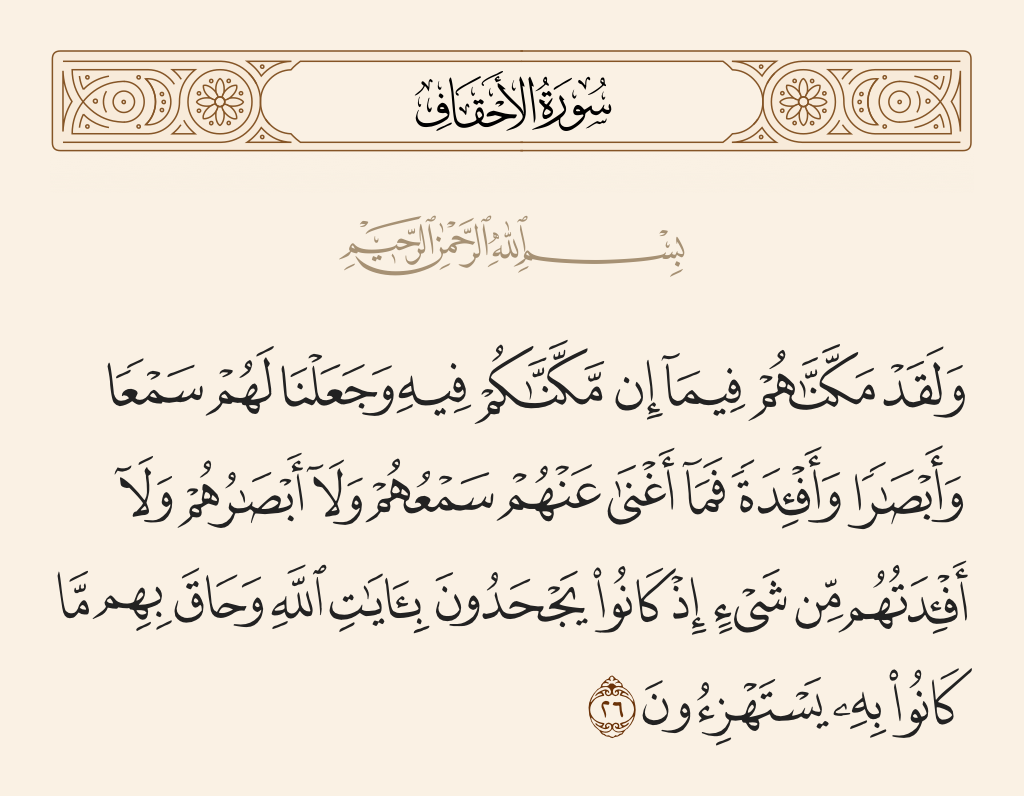 سُورَةُ الأَحْقَافِ
بِسْمِ ٱللَّهِ ٱلرَّحْمَٰنِ ٱلرَّحِيمِ
وَلَقَدْ مَكَّنَّٰهُمْ فِيمَآ إِن مَّكَّنَّٰكُمْ فِيهِ وَجَعَلْنَا لَهُمْ سَمْعًا
وَأَبْصَٰرًا وَأَفْـِٔدَةً فَمَآ أَغْنَىٰ عَنْهُمْ سَمْعُهُمْ وَلَآ أَبْصَٰرُهُمْ وَلَآ
أَفْـِٔدَتُهُم مِّن شَىْءٍ إِذْ كَانُوا۟ يَجْحَدُونَ بِـَٔايَٰتِ ٱللَّهِ وَحَاقَ بِهِم مَّا
كَانُوا۟ بِهِۦ يَسْتَهْزِءُونَ ٢٦